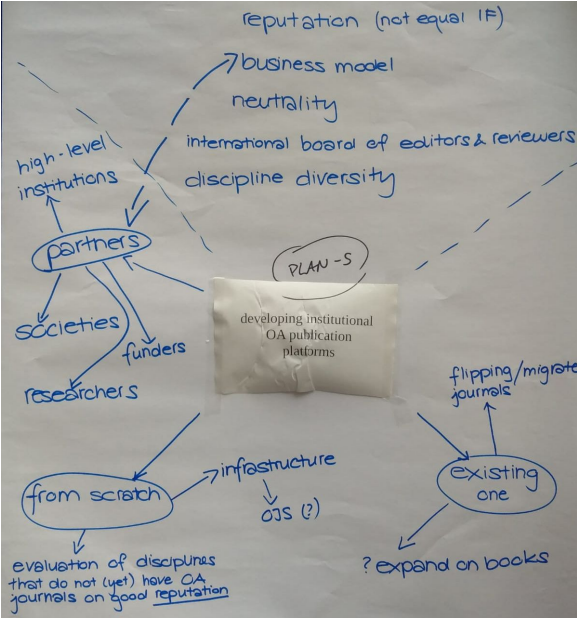 reputation (not equal IF)
business model
neutrality
international board of editors & reviewers
discipline diversity
high-level
institutions
partners
societies
funders
researchers
PLAN-S
developing institutional
OA publication
platforms
flipping/migrate
journals
existing
one
? expand on books
from scratch
infrastructure
OJS (?)
evaluation of disciplines
that do not (yet) have OA
journals on good reputation